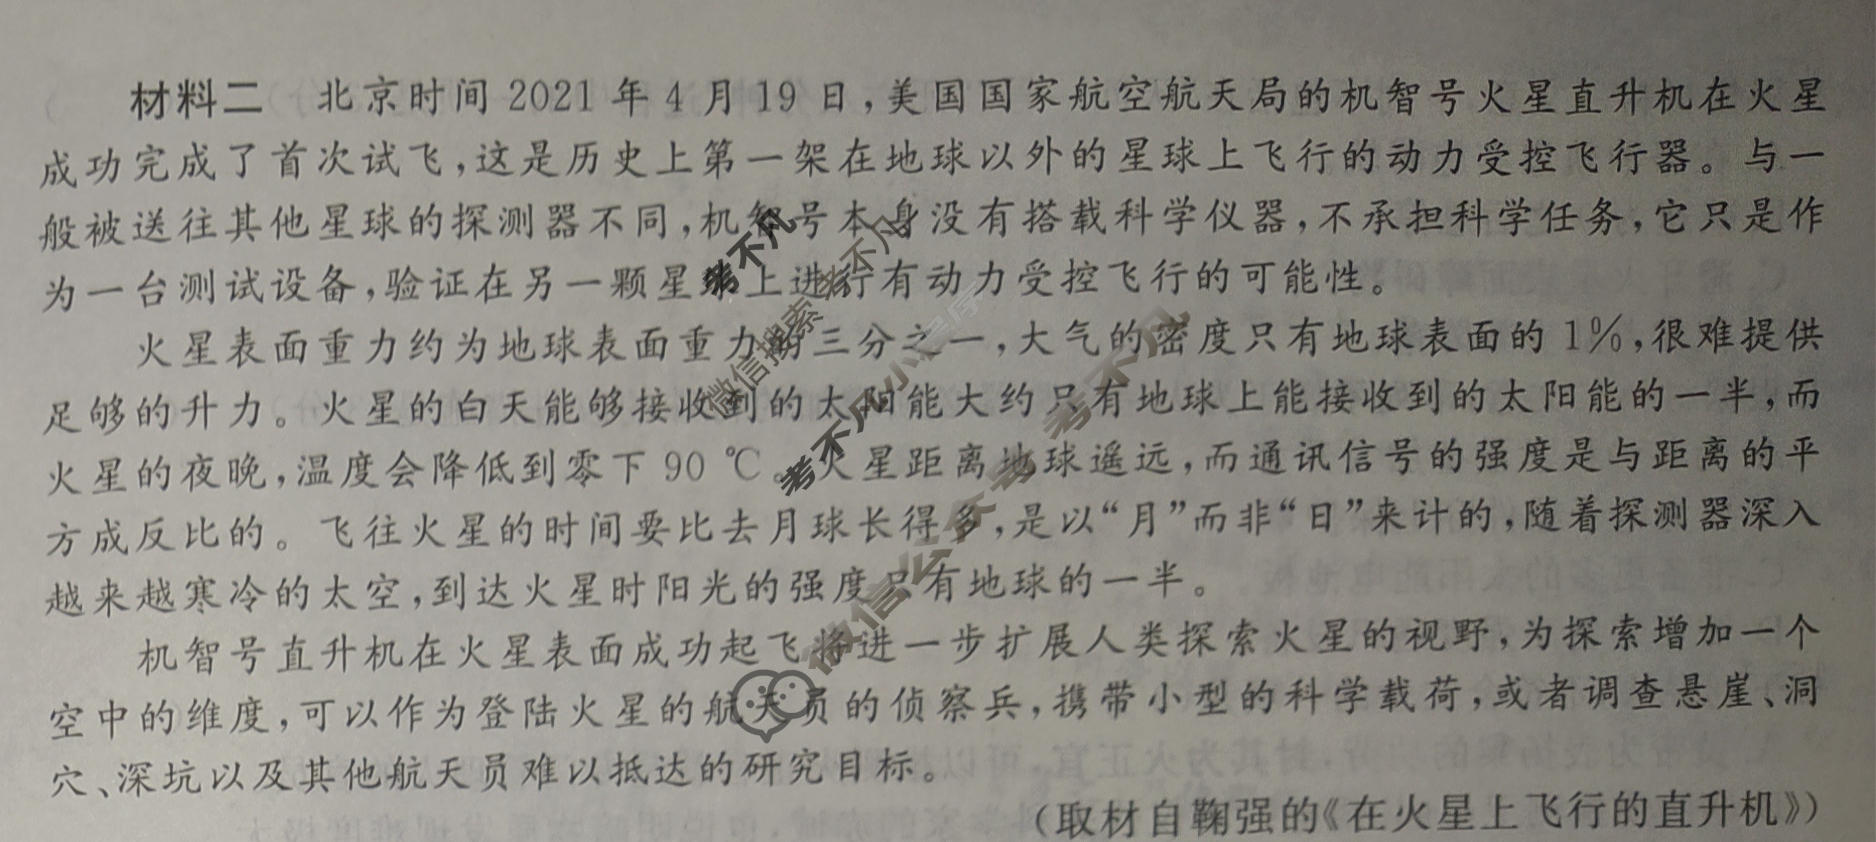 材料二 北京时间2021年4月19日,美国国家航空航天局的机智号火星直升机在火星
成功完成了首次试飞,这是历史上第一架在地球以外的星球上飞行的动力受控飞行器。与一
般被送往其他星球的探测器不同,机智号本身没有搭载科学仪器,不承担科学任务,它只是作
为一台测试设备,验证在另一颗星球上进行有动力受控飞行的可能性。
火星表面重力约为地球表面重力的三分之一,大气的密度只有地球表面的1%,很难提供
足够的升力。火星的白天能够接收到的太阳能大约只有地球上能接收到的太阳能的一半,而
火星的夜晚,温度会降低到零下90℃。火星距离地球遥远,而通讯信号的强度是与距离的平
方成反比的。飞往火星的时间要比去月球长得多,是以“月”而非“日”来计的,随着探测器深入
越来越寒冷的太空,到达火星时阳光的强度只有地球的一半。
机智号直升机在火星表面成功起飞将进一步扩展人类探索火星的视野,为探索增加一个
空中的维度,可以作为登陆火星的航天员的侦察兵,携带小型的科学载荷,或者调查悬崖、洞
穴、深坑以及其他航天员难以抵达的研究目标。
(取材自鞠强的《在火星上飞行的直升机》)
考不凡
微信搜索 考不凡
考不凡小程序
微信公众号 考不凡